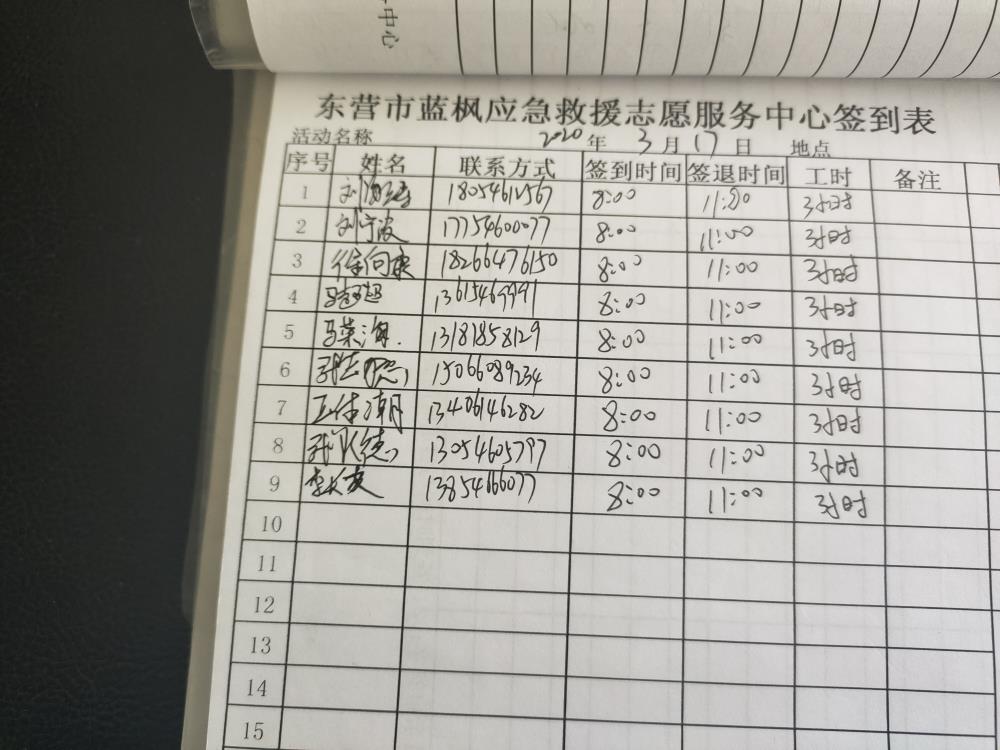 中心
东营市蓝枫应急救援志愿服务中心签到表
活动名称 2020年 3月 17日 地点
序号 姓名 联系方式 签到时间 签退时间 工时 备注
1 18054612567 8:00 11:00 3小时
2 刘宁波 17754600077 8:00 11:00 3小时
3 徐向东 18266476150 8:00 11:00 3小时
4 马超超 13615469991 8:00 11:00 3小时
5 马荣海 13181858129 8:00 11:00 3小时
6 15066089234 8:00 11:00 3小时
7 王体潮 13406146282 8:00 11:00 3小时
8 13054605797 8:00 11:00 3小时
9 李长友 13854666077 8:00 11:00 3小时
10
11
12
13
14
15